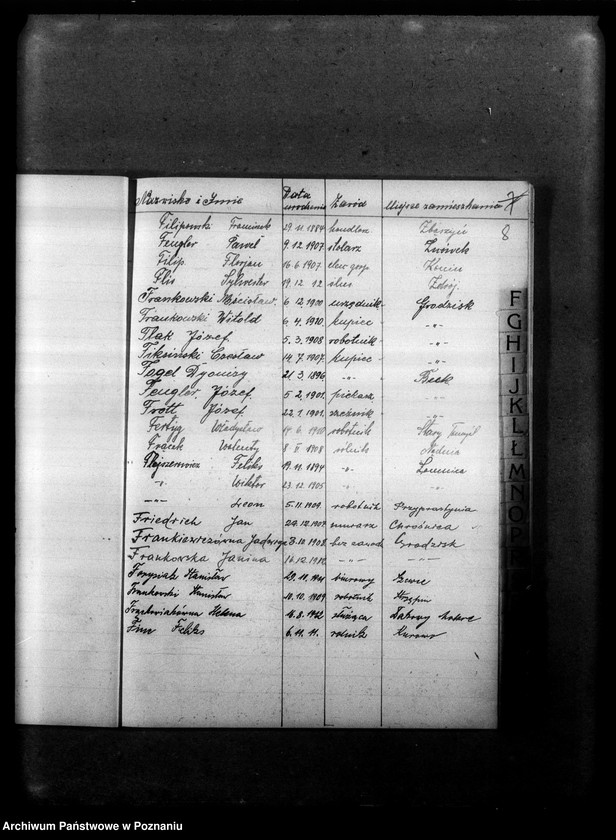 Nazwisko i Imię Data urodzenia Zawód Miejsce zamieszkania 7
8
Filipowski Franciszek 29 11 1884 handlow. Zbąszyń
Fengler Paweł 9.12 1907 stolarz Lwówek
Filip Florjan 16 6 1907
Flis Sylwester 19.12 12 ślus Zdrój
Frankowski Mieczysław 6.12.1900 urzędnik Grodzisk
Frankowski Witold 6.4.1910 kupiec -"-
Flak Józef 5.3.1908 robotnik -"-
Fiksiński Czesław 14.7.1907. kupiec -"-
Fagel Dyonizy 21.3.1896 -"- Buck
Fengler Józef 5.2.1901 piekarz -"-
Frott Józef 22.1.1901 rzeźnik -"-
Fertyg Władysław 14.6. robotnik Stary
Frąck Walenty 8 1908 rolnik
Flejszerowicz Feliks 19.11.1894 " Łomnica
" Wiktor 23.12.1905 "
-"- Leon 5.11.1909 robotnik Przyprostynia
Friedrich Jan 24.12.1907 murarz Chrośnica
Frankiewiczówna Jadwiga 3.10.1908 bez zawodu Grodzisk
Frankowska Janina 16.12.1910 -"- -"-
Stanisław 29.11. biurowy
Frankowski Stanisław 10.10.1909 robotnik
Frąckowiakówna Helena 16.8.1912 służąca Dakowy Mokre
Feliks 6.11.11. rolnik Kurowo
F
G
H
I
J
K
L
Ł
M
N
O
P
Archiwum Państwowe w Poznaniu